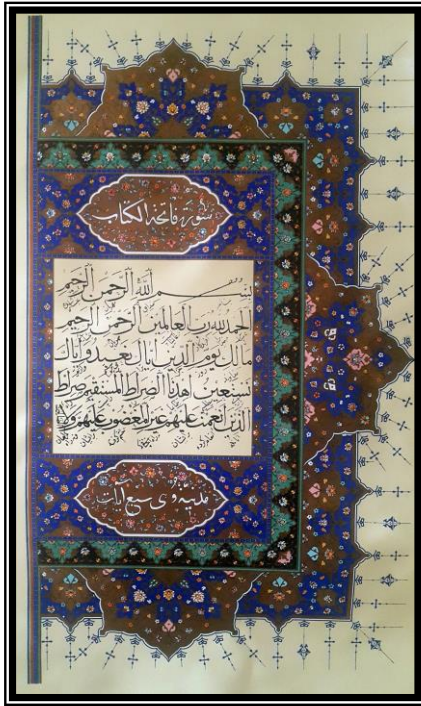 سورة فاتحة الكتاب
بسم الله الرحمن الرحيم
الحمد لله رب العالمين الرحمن الرحيم
مالك يوم الدين اياك نعبد واياك
نستعين اهدنا الصراط المستقيم صراط
الذين انعمت عليهم غير المغضوب عليهم ولا
مدنية وهي سبع آيات